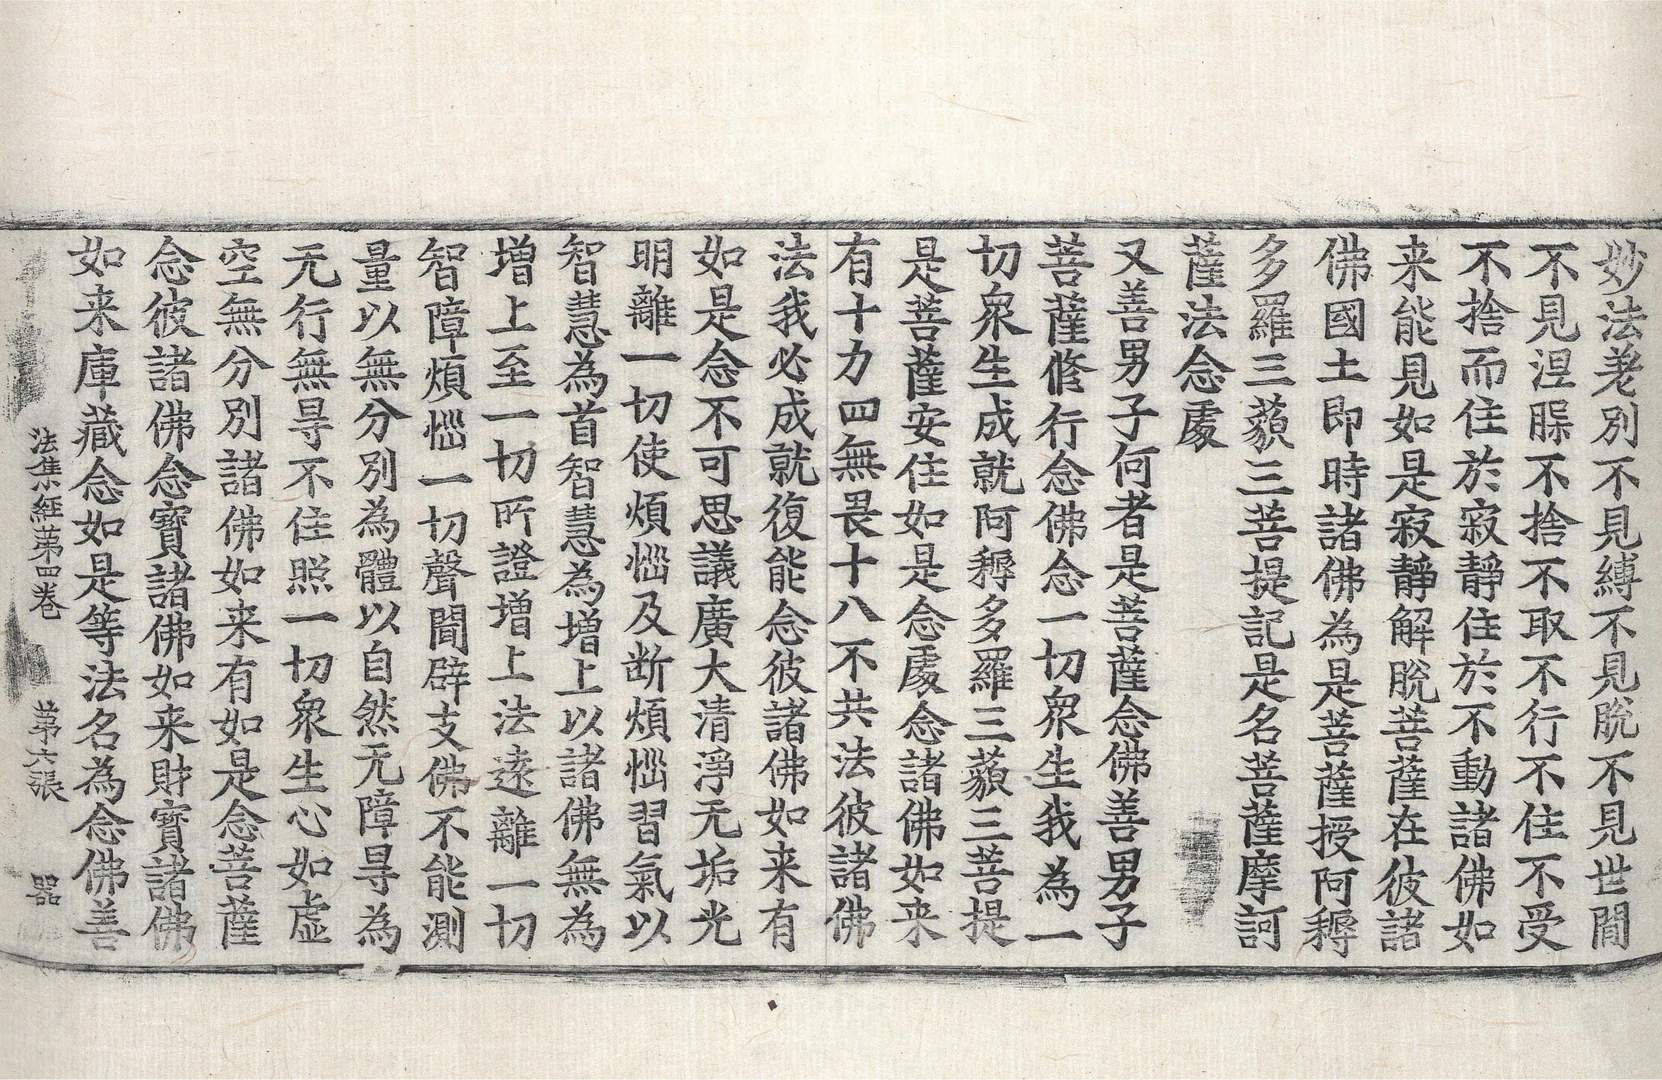 妙法差別不見縛不見脫不見世間
不見涅槃不捨不取不行不住不受
不捨而住於寂靜住於不動諸佛如
来能見如是寂靜解脫菩薩在彼諸
佛國土即時諸佛為是菩薩授阿耨
多羅三藐三菩提記是名菩薩摩訶
薩法念處
又善男子何者是菩薩念佛善男子
菩薩修行念佛念一切衆生我為一
切衆生成就阿耨多羅三藐三菩提
是菩薩安住如是念處念諸佛如来
有十力四無畏十八不共法彼諸佛
法我必成就復能念彼諸佛如来有
如是念不可思議廣大清淨无垢光
明離一切使煩惱及断煩惱習氣以
智慧為首智慧為增上以諸佛無為
增上至一切所證增上法遠離一切
智障煩惱一切聲聞辟支佛不能測
量以無分別為體以自然无障㝵為
无行無㝵不住照一切衆生心如虛
空無分別諸佛如来有如是念菩薩
念彼諸佛念寶諸佛如来財寶諸佛
如来庫藏念如是等法名為念佛善
法集經第四卷　第六張　器